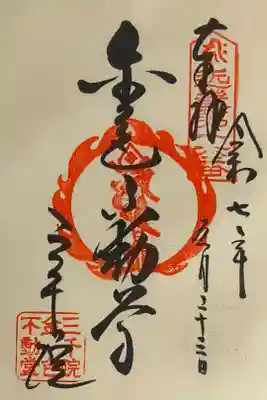 奉拝
令和七年
五月二十三日
金色不動尊
三千院
三千院
金色
不動堂